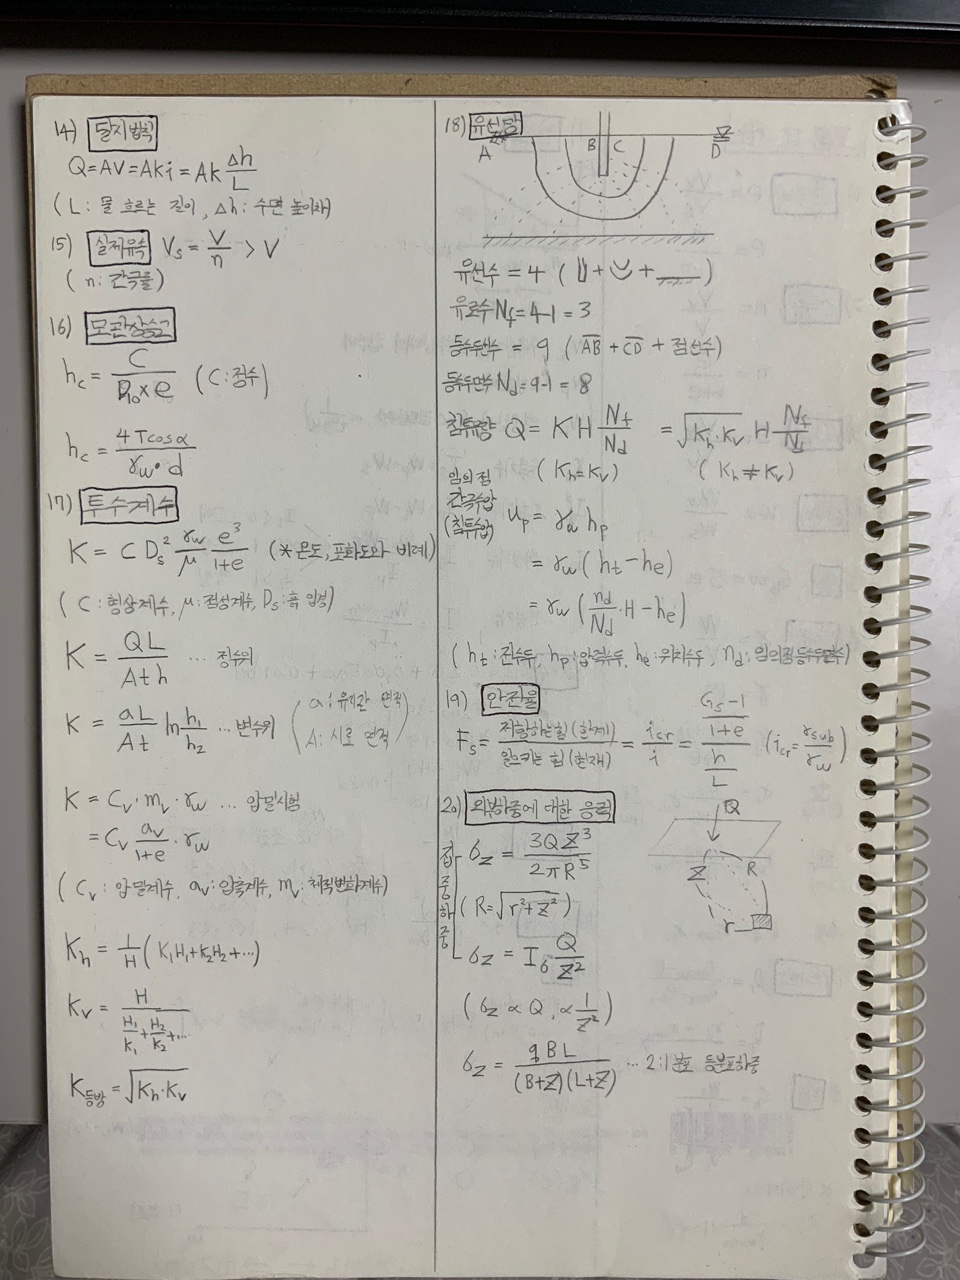 14) 달시법칙
Q=AV=Aki=Ak Δh/L
(L: 물 흐르는 길이, Δh: 수면 높이차)
15) 실제유속 Vs = V/n > V
(n: 간극률)
16) 모관상승고
hc = C/(D10×e) (C:정수)
hc = 4Tcosα/(γw·d)
17) 투수계수
K = C Ds² γw/μ e³/(1+e) (*온도, 포화도와 비례)
(C:형상계수, μ:점성계수, Ds:흙 입경)
K = QL/(Ath) … 정수위
K = aL/(At) ln h1/h2 … 변수위 (a:유리관 면적
A:시료 면적)
K = Cv·mv·γw … 압밀시험
= Cv av/(1+e)·γw
(Cv: 압밀계수, av:압축계수, mv:체적변화계수)
Kh = 1/H (K1H1+K2H2+…)
Kv = H/(H1/K1+H2/K2+…)
K등방 = √(Kh·Kv)
18) 유선망
A B C D
유선수 = 4 ( + + )
유로수 Nf=4-1=3
등수두선수 = 9 (AB+CD+점선수)
등수두면수 Nd=9-1=8
침투유량 Q= K H Nf/Nd = √(Kh·Kv) H Nf/Nd
(Kh=Kv) (Kh≠Kv)
임의점
간극수압
(침투수압) up = γw hp
= γw (ht-he)
= γw (nd/Nd·H-he)
(ht:전수두, hp:압력수두, he:위치수두, nd:임의점등수두면수)
19) 안전율
Fs= 저항하는힘(한계)/일으키는 힘(현재) = icr/i = ((Gs-1)/(1+e))/(h/L) (icr=γsub/γw)
20) 외부하중에 대한 응력
집중하중
σz = 3QZ³/(2πR⁵)
(R=√(r²+z²))
σz = Iσ Q/Z²
(σz ∝ Q, ∝ 1/Z²)
Q
Z R
r
σz = qBL/((B+Z)(L+Z)) … 2:1분포 등분포하중